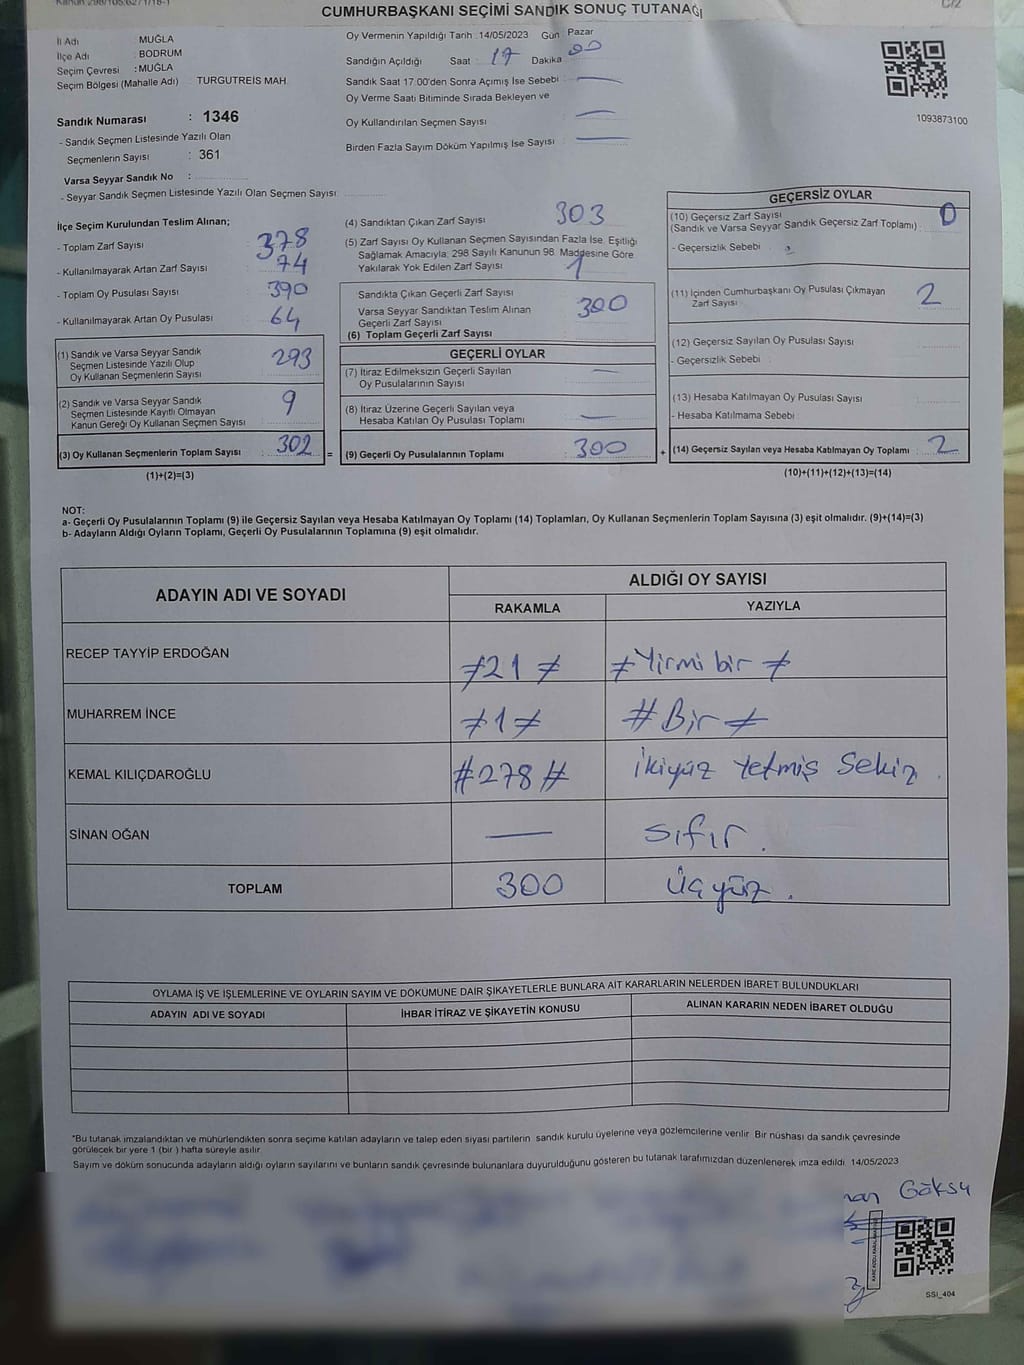 Kanun 298/105:6271/18-1
C/2
CUMHURBAŞKANI SEÇİMİ SANDIK SONUÇ TUTANAĞI
İl Adı : MUĞLA
İlçe Adı : BODRUM
Seçim Çevresi : MUĞLA
Seçim Bölgesi (Mahalle Adı) : TURGUTREİS MAH.
Sandık Numarası : 1346
- Sandık Seçmen Listesinde Yazılı Olan
Seçmenlerin Sayısı : 361
Varsa Seyyar Sandık No :
- Seyyar Sandık Seçmen Listesinde Yazılı Olan Seçmen Sayısı:
Oy Vermenin Yapıldığı Tarih :14/05/2023 Gün : Pazar
Sandığın Açıldığı Saat : 17 Dakika : 00
Sandık Saat 17:00'den Sonra Açımış İse Sebebi : —
Oy Verme Saati Bitiminde Sırada Bekleyen ve
Oy Kullandırılan Seçmen Sayısı : —
Birden Fazla Sayım Döküm Yapılmış İse Sayısı : —
1093873100
İlçe Seçim Kurulundan Teslim Alınan;
- Toplam Zarf Sayısı : 378
- Kullanılmayarak Artan Zarf Sayısı : 74
- Toplam Oy Pusulası Sayısı : 390
- Kullanılmayarak Artan Oy Pusulası : 64
(1) Sandık ve Varsa Seyyar Sandık
Seçmen Listesinde Yazılı Olup
Oy Kullanan Seçmenlerin Sayısı : 293
(2) Sandık ve Varsa Seyyar Sandık
Seçmen Listesinde Kayıtlı Olmayan
Kanun Gereği Oy Kullanan Seçmen Sayısı : 9
(3) Oy Kullanan Seçmenlerin Toplam Sayısı : 302
(1)+(2)=(3)
=
(4) Sandıktan Çıkan Zarf Sayısı : 303
(5) Zarf Sayısı Oy Kullanan Seçmen Sayısından Fazla İse, Eşitliği
Sağlamak Amacıyla; 298 Sayılı Kanunun 98. Maddesine Göre
Yakılarak Yok Edilen Zarf Sayısı : 1
Sandıkta Çıkan Geçerli Zarf Sayısı
Varsa Seyyar Sandıktan Teslim Alınan
Geçerli Zarf Sayısı
(6) Toplam Geçerli Zarf Sayısı : 300
GEÇERLİ OYLAR
(7) İtiraz Edilmeksizin Geçerli Sayılan
Oy Pusulalarının Sayısı : —
(8) İtiraz Üzerine Geçerli Sayılan veya
Hesaba Katılan Oy Pusulası Toplamı : —
(9) Geçerli Oy Pusulalarının Toplamı : 300
+
GEÇERSİZ OYLAR
(10) Geçersiz Zarf Sayısı
(Sandık ve Varsa Seyyar Sandık Geçersiz Zarf Toplamı) : 0
- Geçersizlik Sebebi :
(11) İçinden Cumhurbaşkanı Oy Pusulası Çıkmayan
Zarf Sayısı : 2
(12) Geçersiz Sayılan Oy Pusulası Sayısı :
- Geçersizlik Sebebi :
(13) Hesaba Katılmayan Oy Pusulası Sayısı :
- Hesaba Katılmama Sebebi :
(14) Geçersiz Sayılan veya Hesaba Katılmayan Oy Toplamı : 2
(10)+(11)+(12)+(13)=(14)
NOT:
a- Geçerli Oy Pusulalarının Toplamı (9) ile Geçersiz Sayılan veya Hesaba Katılmayan Oy Toplamı (14) Toplamları, Oy Kullanan Seçmenlerin Toplam Sayısına (3) eşit olmalıdır. (9)+(14)=(3)
b- Adayların Aldığı Oyların Toplamı, Geçerli Oy Pusulalarının Toplamına (9) eşit olmalıdır.
ADAYIN ADI VE SOYADI ALDIĞI OY SAYISI
RAKAMLA YAZIYLA
RECEP TAYYİP ERDOĞAN ≠21≠ ≠Yirmi bir≠
MUHARREM İNCE ≠1≠ #Bir≠
KEMAL KILIÇDAROĞLU #278# İkiyüz Yetmiş Sekiz.
SİNAN OĞAN — Sıfır.
TOPLAM 300 üçyüz.
OYLAMA İŞ VE İŞLEMLERİNE VE OYLARIN SAYIM VE DÖKÜMÜNE DAİR ŞİKAYETLERLE BUNLARA AİT KARARLARIN NELERDEN İBARET BULUNDUKLARI
ADAYIN ADI VE SOYADI İHBAR İTİRAZ VE ŞİKAYETİN KONUSU ALINAN KARARIN NEDEN İBARET OLDUĞU
*Bu tutanak imzalandıktan ve mühürlendikten sonra seçime katılan adayların ve talep eden siyasi partilerin sandık kurulu üyelerine veya gözlemcilerine verilir. Bir nüshası da sandık çevresinde
görülecek bir yere 1 (bir) hafta süreyle asılır.
Sayım ve döküm sonucunda adayların aldığı oyların sayılarını ve bunların sandık çevresinde bulunanlara duyurulduğunu gösteren bu tutanak tarafımızdan düzenlenerek imza edildi. 14/05/2023
Göksu
SSI_404